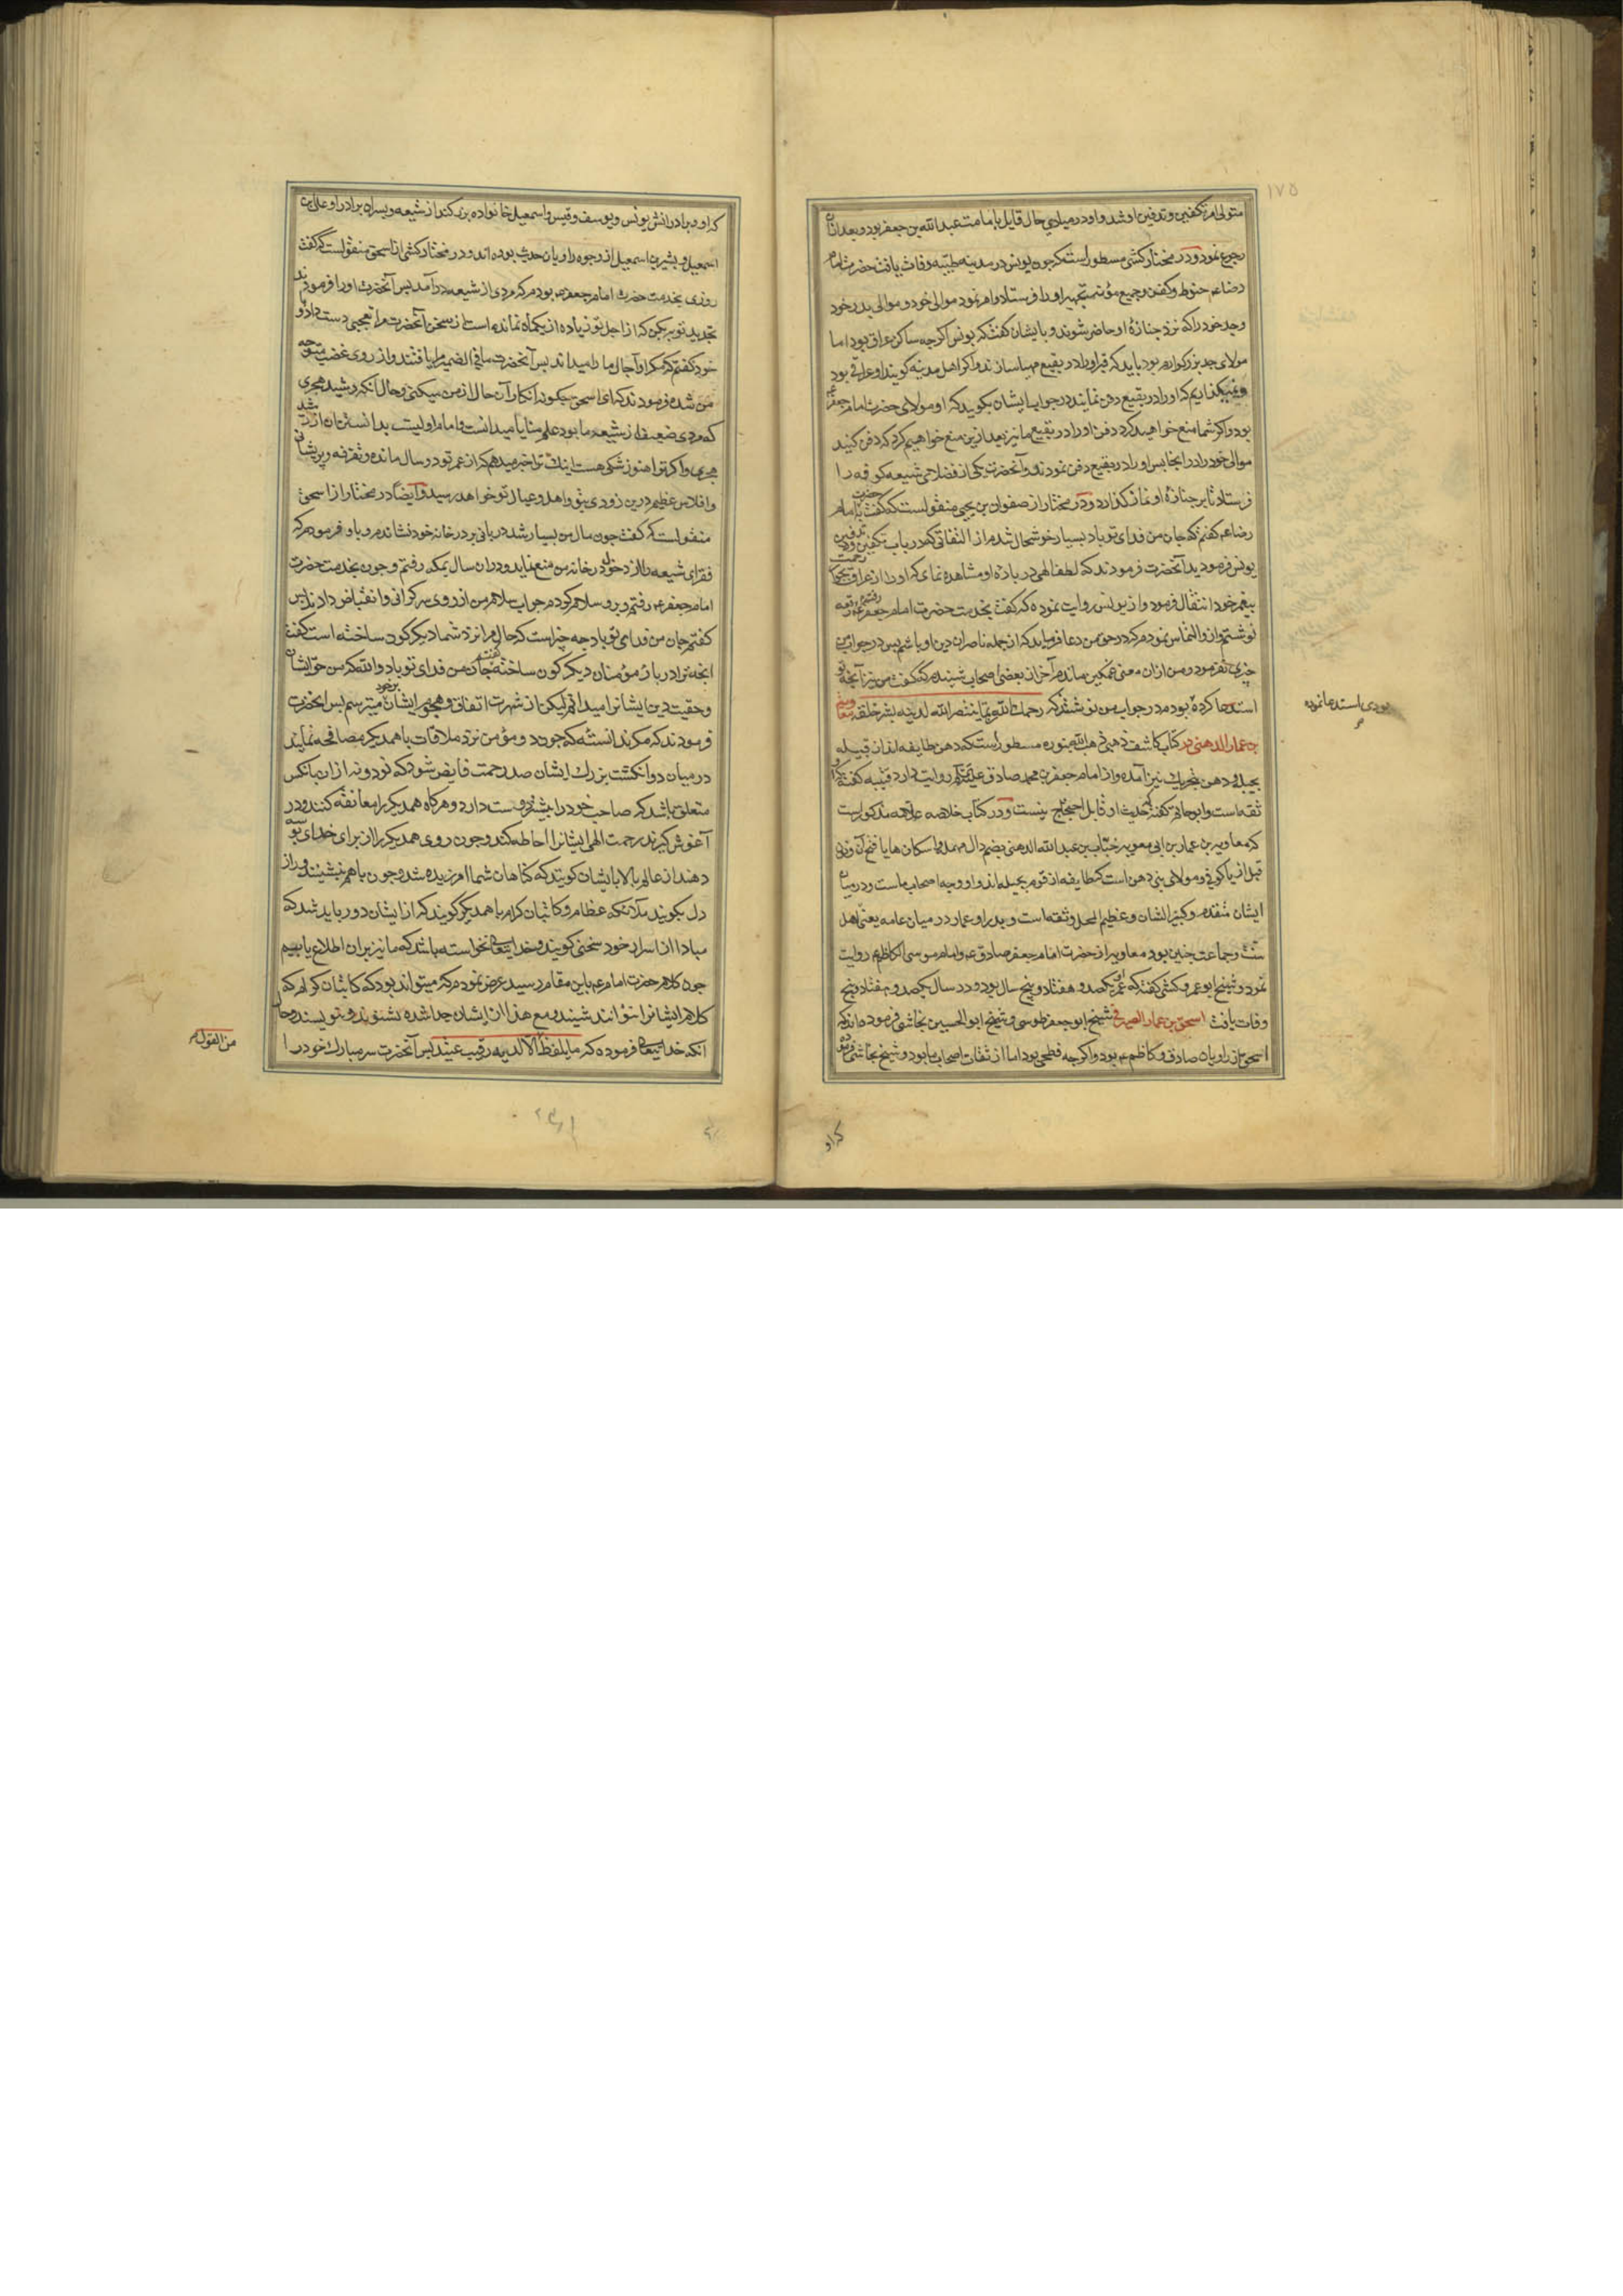 ۱۷۵
متولی امر تکفین و تدفین او شد و او در مبادی حال قایل بامامت عبدالله بن جعفر بود و بعد ازان
رجوع نمود و در مختار کشی مسطور است که چون یونس در مدینه طیبه وفات یافت حضرت امام
رضا عم حنوط و کفن و جمیع مؤنت تجهیز او را فرستاد و امر نمود موالی خود و موالی پدر خود
وجد خود را که نزد جنازهٔ او حاضر شوند و با ایشان گفت که یونس اگرچه ساکن عراق بود اما
مولای جد بزرگوارم بود باید که قبر او را در بقیع مهیا سازند و اگر اهل مدینه گویند او عراقی بود
و نمیگذاریم که او را در بقیع دفن نمایند در جواب ایشان بگوید که او مولای حضرت امام جعفر
بود و اگر شما منع خواهید کرد دفن او را در بقیع ما نیز بعد ازین منع خواهیم کرد که دفن کنید
موالی خود را در اینجا پس او را در بقیع دفن نمودند و آنحضرت یکی از فضلای شیعه کوفه را
فرستاد تا بر جنازهٔ او نماز گذارد و در مختار از صفوان بن یحیی منقولست که گفت با حضرت امام
رضا عم گفتم که جان من فدای تو باد بسیار خوشحال شدم از التفاتی که در باب تکفین و تدفین
یونس فرمودید آنحضرت فرمودند که لطف الهی در بارهٔ او مشاهده نمای که او را از عراق بجوار رحمت
پیغمبر خود انتقال فرمود و از یونس روایت نموده که گفت بخدمت حضرت امام جعفر عم رقعه
نوشتم و ازو التماس نمودم که در حق من دعا فرماید که از جمله ناصران دین او باشم پس در جواب من
چیزی نفرمود و من ازان معنی غمگین ماندم آخر از بعضی اصحاب شنیدم که گفت من نیز آنچه تو
استدعا کرده بودی در جواب من نوشتند که رحمک الله انما ینتصر الله لدینه بشر خلقه
بن عمار الدهنی در کتاب کاشف ذهبی مسطور است که دهن طایفه اند از قبیله
بجیله و دهن بتحریک نیز آمده و از امام جعفر بن محمد صادق علیه السلام روایت دارد قتیبه گفته که او
ثقه است و ابو حاتم گفته که حدیث او قابل احتجاج نیست و در کتاب خلاصه علامه مذکور است
که معاویه بن عمار بن ابی معویه خباب بن عبدالله الدهنی بضم دال مهمله و اسکان ها یا فتح آن و نون
قبل از یا کوفی و مولای بنی دهن است که طایفه از قوم بجیله اند و او وجه اصحاب ماست و در میان
ایشان متقدم و کبیر الشان و عظیم المحل و ثقه است و پدر او عمار در میان عامه یعنی اهل
سنت و جماعت چنین بود و معاویه از حضرت امام جعفر صادق عم و امام موسی الکاظم عم روایت
نمود و شیخ ابو عمرو کشی گفته که عمر او یکصد و هفتاد و پنج سال بود و در سال یکصد و هفتاد و پنج
وفات یافت اسحق بن عمار الصیرفی شیخ ابو جعفر طوسی و شیخ ابو الحسین نجاشی فرموده اند که
اسحق از راویان صادق و کاظم عم بود و اگر چه فطحی بود اما از ثقات اصحاب ما بود و شیخ نجاشی فرموده
که او و برادرانش یونس و یوسف و قیس و اسمعیل خانواده بزرگند از شیعه و پسران برادر او علی بن
اسمعیل و بشر بن اسمعیل از وجوه راویان حدیث بوده اند و در مختار کشی از اسحق منقولست که گفت
روزی بخدمت حضرت امام جعفر عم بودم که مردی از شیعه درآمد پس آنحضرت او را فرمودند
تجدید توبه بکن که از اجل تو زیاده از یکماه نمانده است از سخن آنحضرت مرا تعجبی دست داد و با
خود گفتم که مگر او آجال ما را میداند پس آنحضرت مافی الضمیر مرا یافتند و از روی غضب متوجه
من شده فرمودند که ای اسحق چگونه انکار آن حال از من میکنی و حال آنکه رشید هجری
که مردی ضعیف از شیعه ما بود علم منایا میدانست و امام اولیست بدانستن آن از رشید
هجری و اگر ترا هنوز شکی هست اینک ترا خبر میدهم که از عمر تو دو سال مانده و تفرقه و پریشانی
و افلاس عظیم درین زودی بتو و اهل و عیال تو خواهد رسید و ایضا در مختار از اسحق
منقولست که گفت چون مال من بسیار شد دربانی بر در خانه خود نشاندم و باو فرمودم که
فقرای شیعه را از دخول در خانه من منع نماید و دران سال بمکه رفتم و چون بخدمت حضرت
امام جعفر عم رفتم و برو سلام کردم جواب سلام من از روی سرگرانی و انقباض دادند پس
گفتم جان من فدای تو باد چه چیز است که حال مرا نزد شما دیگرگون ساخته است گفت
آنچه ترا در باره مؤمنان دیگرگون ساخته گفتم جان من فدای تو باد والله که من حق ایشان
و حقیت دین ایشانرا میدانم لیکن از شهرت اتفاق و هجوم ایشان بر خود میترسم پس آنحضرت
فرمودند که مگر ندانسته که چون دو مؤمن نزد ملاقات با همدیگر مصافحه نمایند
در میان دو انگشت بزرگ ایشان صد رحمت فایض شود که نود و نه ازان بآنکس
متعلق باشد که صاحب خود را بیشتر دوست دارد و هرگاه همدیگر را معانقه کنند و در
آغوش گیرند رحمت الهی ایشانرا احاطه کند و چون روی همدیگر را از برای خدای بوسه
دهند از عالم بالا بایشان گویند که گناهان شما امرزیده شد و چون باهم نشینند و راز
دل بگویند ملائکه عظام و کاتبان کرام با همدیگر گویند که از ایشان دور باید شد که
مبادا از اسرار خود سخنی گویند و خدایتعالی نخواسته باشد که ما نیز بران اطلاع یابیم
چون کلام حضرت امام عم باین مقام رسید عرض نمودم که میتواند بود که کاتبان کرام که
کلام ایشانرا نتوانند شنید و مع هذا از ایشان جدا شده نشنوند و ننویسند و حال
آنکه خدایتعالی فرموده که ما یلفظ الا لدیه رقیب عتید پس آنحضرت سر مبارک خود را
من القول